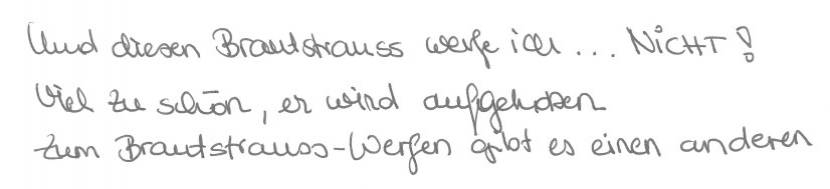 Und diesen Brautstrauss werfe ich ... NICHT!
Viel zu schön, er wird aufgehoben
zum Brautstrauss-Werfen gibt es einen anderen